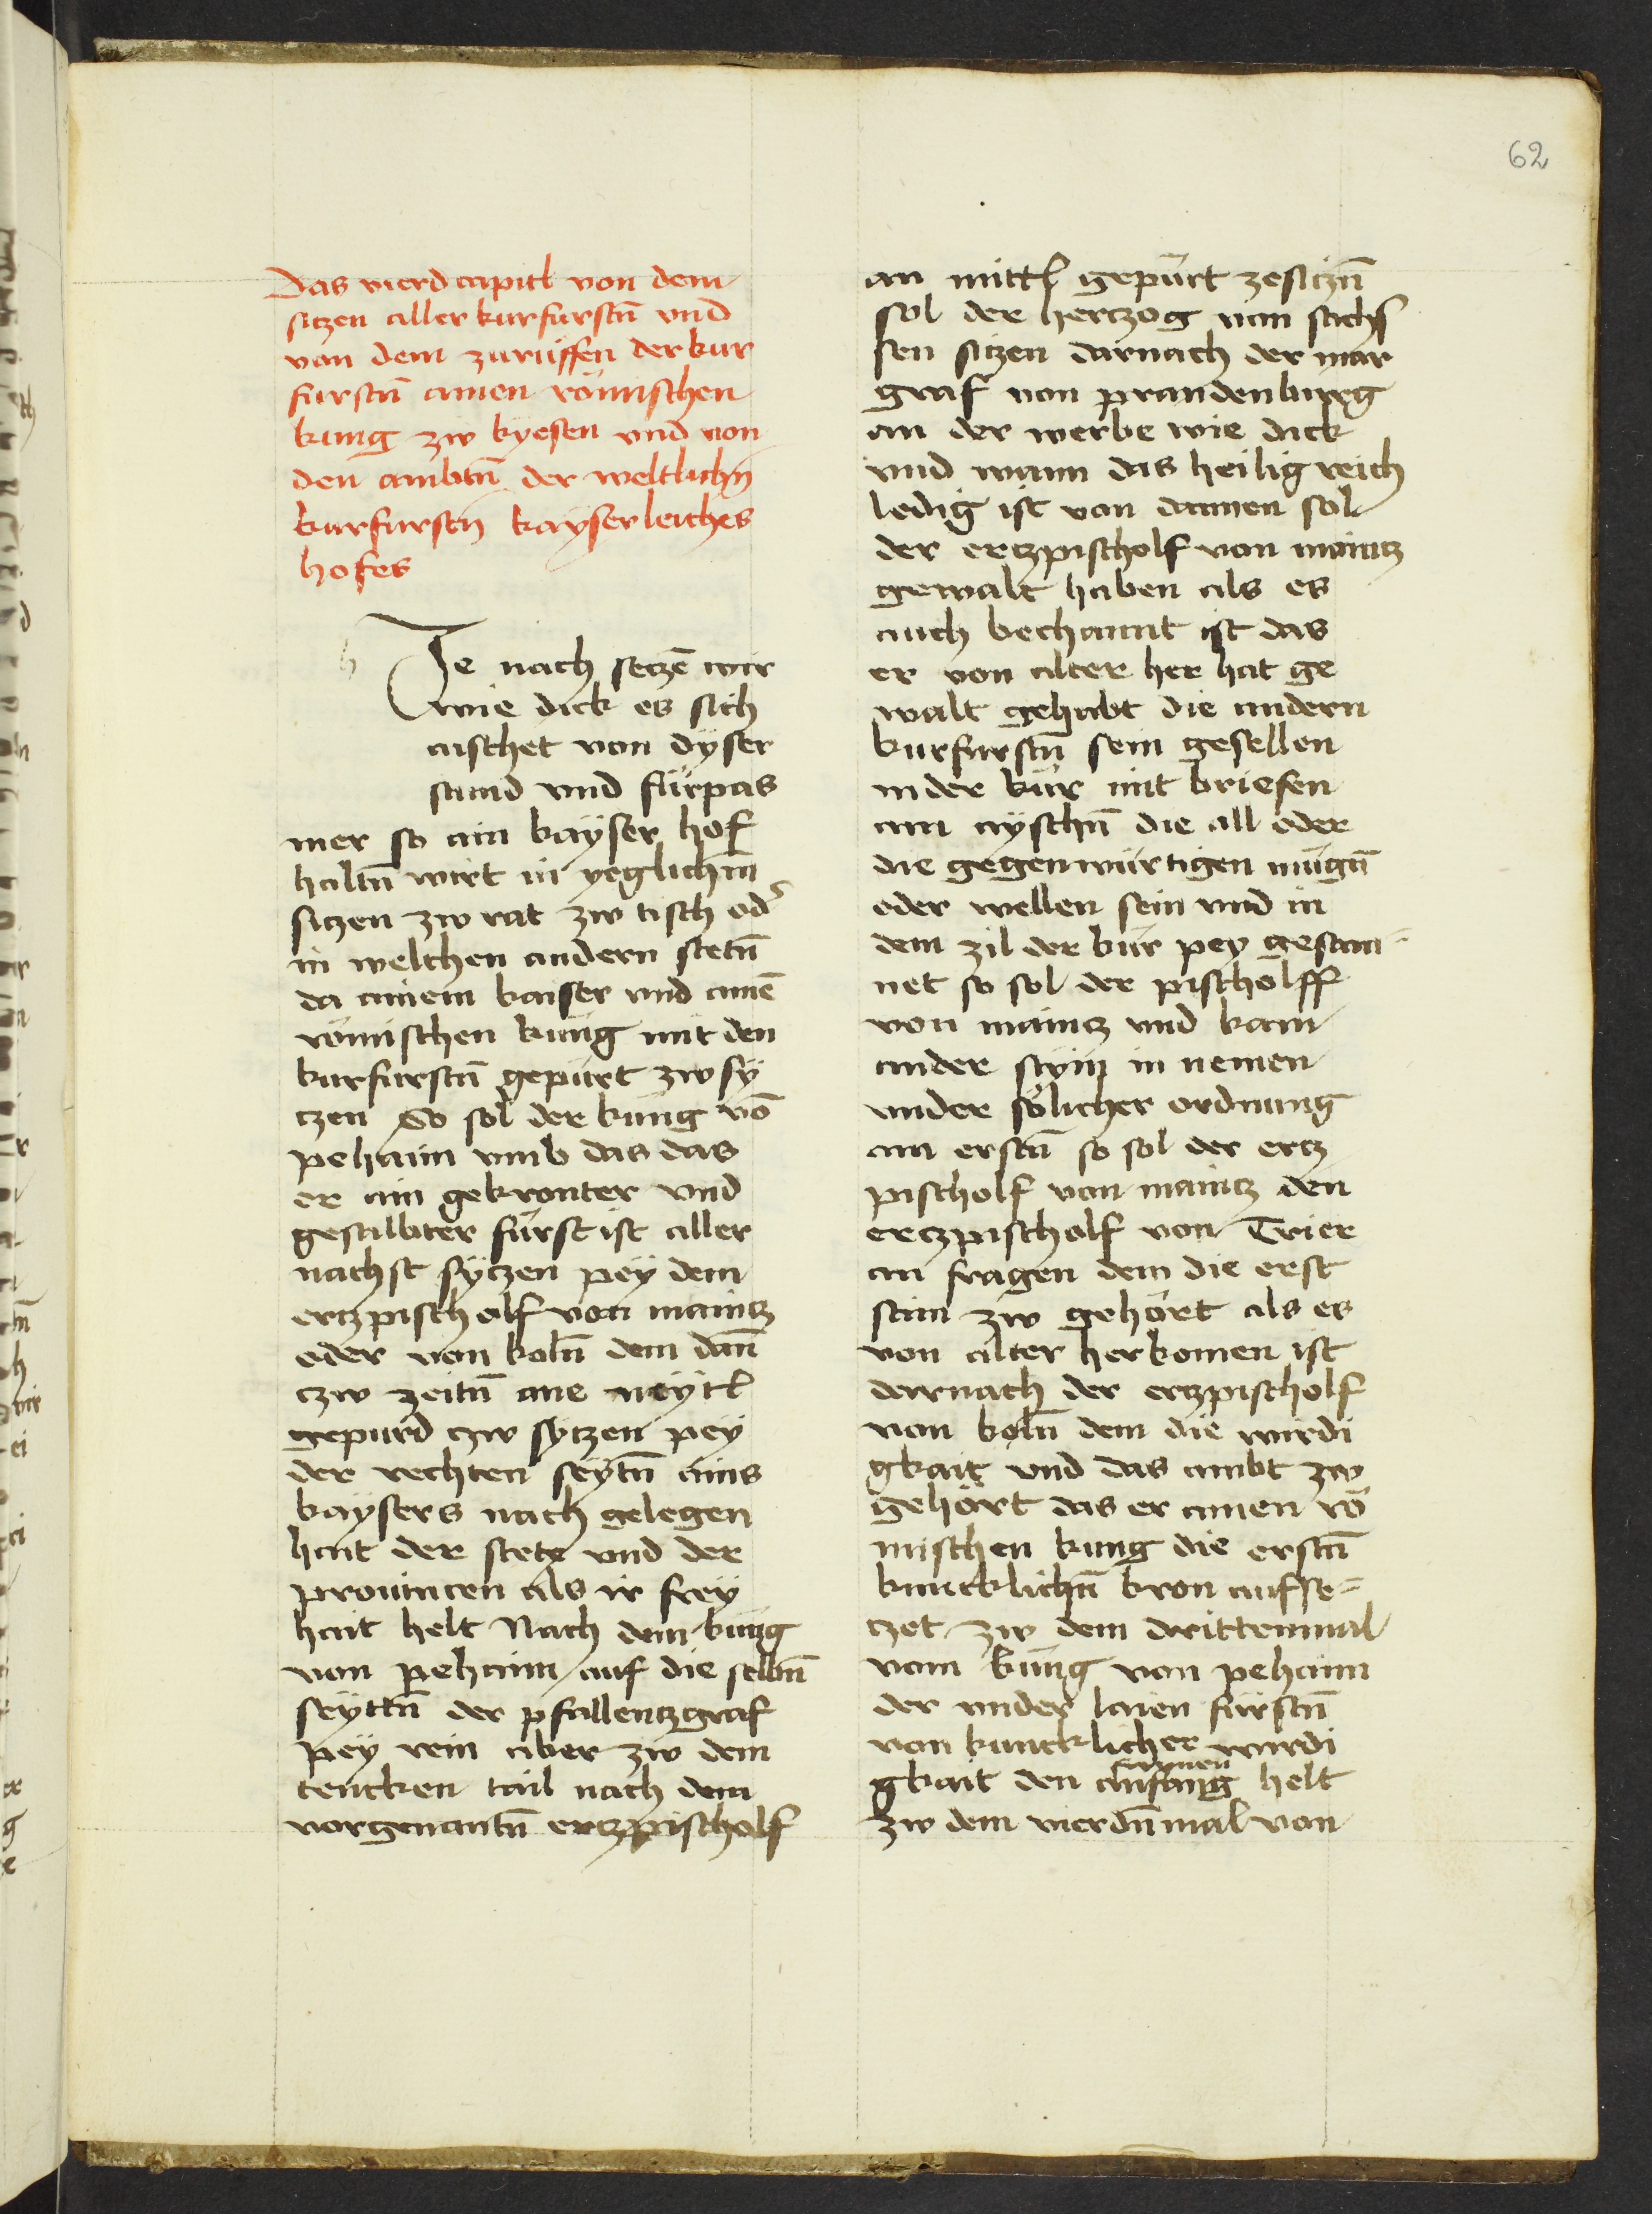 62
Das vierd capitl von dem
sitzen aller kurfurstn̄ vnd
von dem zurüffen der kur
furstn̄ ainen römischen
kung zw kyesen vnd von
den ambtn̄ der weltlichn̄
kurfurstn̄ kayserleiches
hofes
h Je nach setzē wir
wie dick es sich
aischet von dyser
stund vnd fürpas
mer so ain kayser hof
haltn̄ wirt in yeglichm̄
sitzen zw rat zw tisch od
in welchen andern stetn̄
da ainem kaiser vnd ainē
römischen küng mit den
kurfurstn̄ gepürt zw sÿ
tzen So sol der kung vō
pehaim vmb das das
er ain gekronter vnd
gesalbter fürst ist aller
nachst sÿtzen pey dem
ertzpischolf von maintz
oder von koln̄ dem dan̄
czw zeitn̄ ane meÿtl
gepurd czw sytzen pey
der rechten seytn̄ ains
kaÿsers nach gelegen
hait der stete vnd der
prouintzen als ir freÿ
hait helt Nach dem küng
von pehaim auf die selbn̄
seyttn̄ der pfallentzgraf
peÿ rein aber zw dem
tencken tail nach dem
vorgenantn̄ ertzpischolf
an mittl gepürt zesitzn̄
sol der hertzog von sachs
sen sitzen darnach der mar
graf von prandenburg
an der werbe wie dick
vnd wann das heilig reich
ledig ist von dannen sol
der ertzpischolf von maintz
gewalt haben als es
auch bechannt ist das
er von alter her hat ge
walt gehabt die andern
kurfurstn̄ sein gesellen
in der kür mit briefen
an aÿschn̄ die all oder
die gegenwürtigen mügn̄
oder wellen sein vnd in
dem zil der kür pey gesam
net so sol der pischolff
von maintz vnd kain
ander stÿm in nemen
vnder sölicher ordnung
am erstn̄ so sol der ertz
pischolf von maintz den
ertzpischolf von Trier
an fragen dem die erst
stim zw gehört als es
von alter herkomen ist
darnach der ertzpischolf
von koln̄ dem die wirdi
gkait vnd das ambt zw
gehört das er ainen rö
mischen kung die erstn̄
kuncklichn̄ kron aufse-
tzet zw dem drittenmal
vom küng von pehaim
der vnder laien fürstn̄
von kuncklicher wirdi
gkait den anfang helt
zw dem vierdn̄mal von